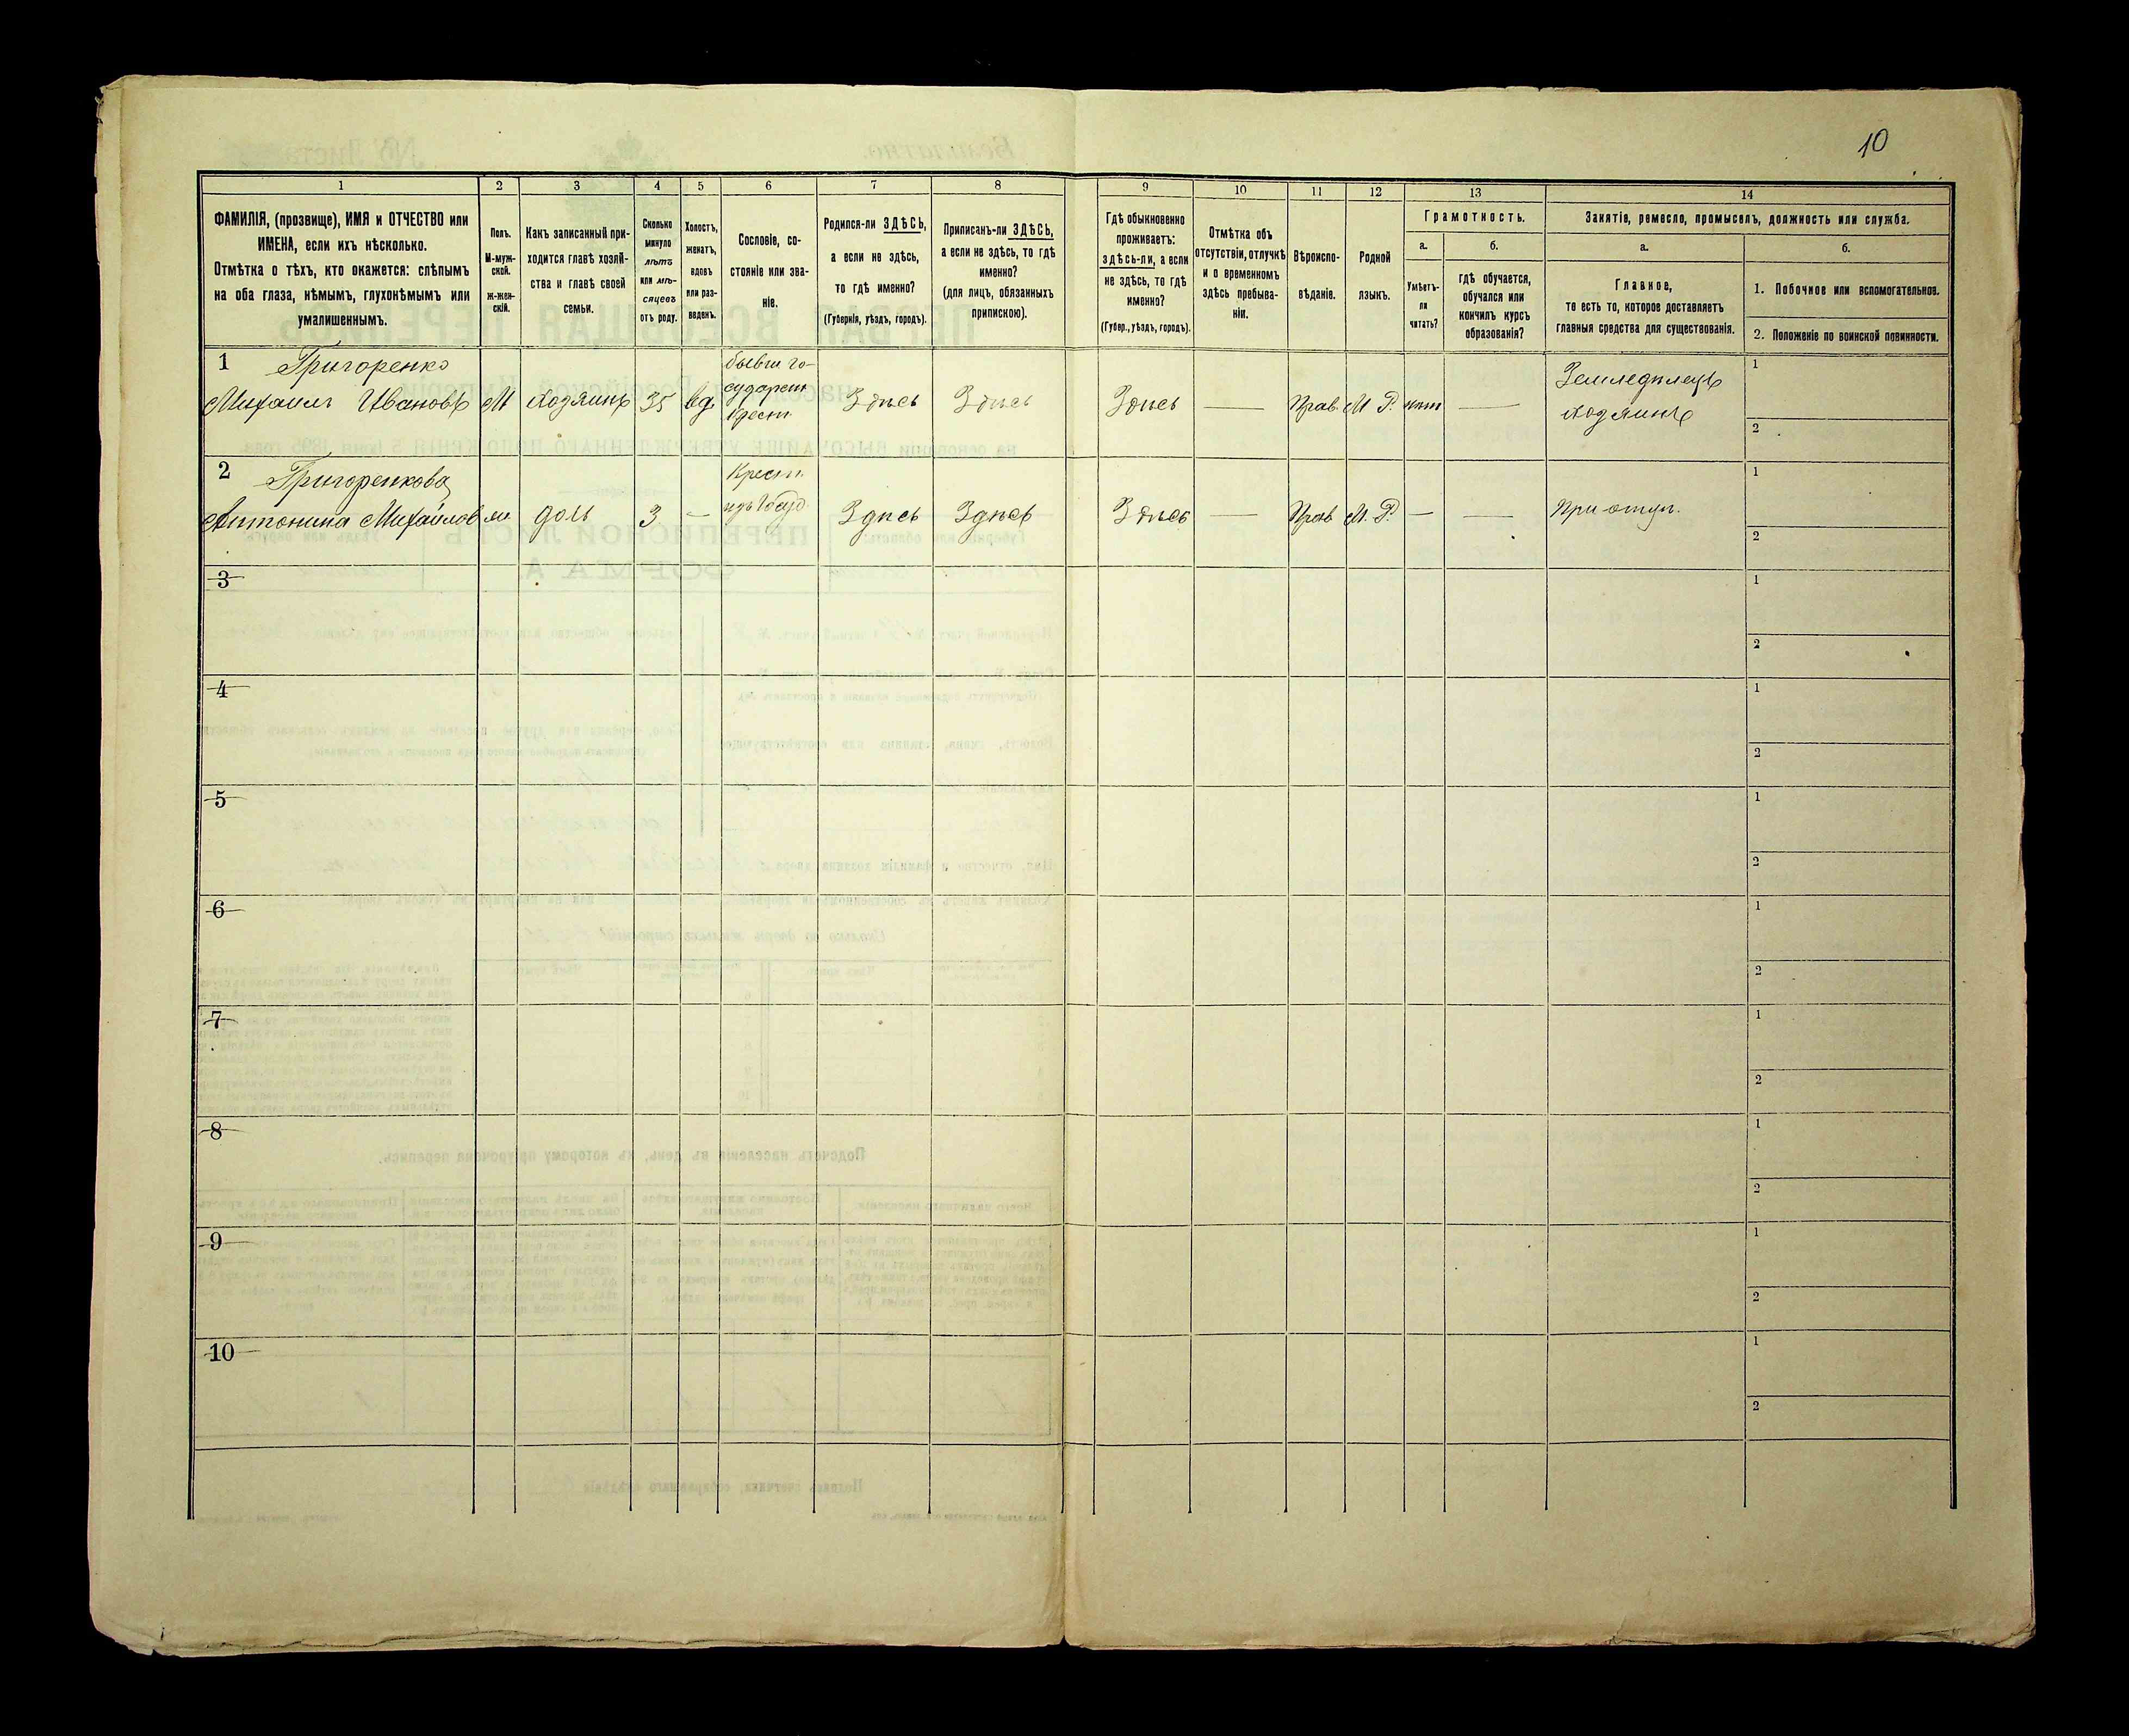 10
1 2 3 4 5 6 7 8 9 10 11 12 13 14
ФАМИЛІЯ, (прозвище), ИМЯ и ОТЧЕСТВО или
ИМЕНА, если ихъ нѣсколько.
Отмѣтка о тѣхъ, кто окажется: слѣпымъ
на оба глаза, нѣмымъ, глухонѣмымъ или
умалишеннымъ.
Полъ.
М-муж-
ской.
ж-жен-
скій.
Какъ записанный при-
ходится главѣ хозяй-
ства и главѣ своей
семьи.
Сколько
минуло
лѣтъ
или мѣ-
сяцевъ
отъ роду.
Холостъ,
женатъ,
вдовъ
или раз-
веденъ.
Сословіе, со-
стояніе или зва-
ніе.
Родился-ли ЗДѢСЬ,
а если не здѣсь,
то гдѣ именно?
(Губернія, уѣздъ, городъ).
Приписанъ-ли ЗДѢСЬ,
а если не здѣсь, то гдѣ
именно?
(для лицъ, обязанныхъ
припискою).
Гдѣ обыкновенно
проживаетъ:
ЗДѢСЬ-ЛИ, а если
не здѣсь, то гдѣ
именно?
(Губер., уѣздъ, городъ).
Отмѣтка объ
отсутствіи, отлучкѣ
и о временномъ
здѣсь пребыва-
ніи.
Вѣроиспо-
вѣданіе.
Родной
языкъ.
Грамотность.
а.
Умѣетъ-
ли
читать?
б.
гдѣ обучается,
обучался или
кончилъ курсъ
образованія?
Занятіе, ремесло, промыселъ, должность или служба.
а.
Главное,
то есть то, которое доставляетъ
главныя средства для существованія.
б.
1. Побочное или вспомогательное.
2. Положеніе по воинской повинности.
1 Григоренко
Михаилъ Ивановъ М хозяинъ 35 вд
бывш го-
сударст
Крест
Здѣсь Здѣсь Здѣсь — Прав. М Р. нѣт —
Земледѣлецъ
хозяинъ
1
2
2 Григоренкова
Антонина Михайлов
доч 3 —
Крест.
Здѣсь Здѣсь Здѣсь — Прав М. Р. — —
При отцѣ.
1
2
3
1
2
4
1
2
5
1
2
6
1
2
7
1
2
8
1
2
9
1
2
10
1
2